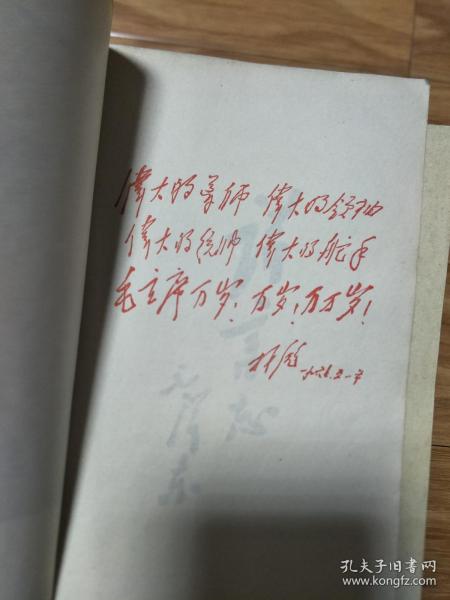 偉大的导师 偉大的领袖
偉大的统帅 偉大的舵手
毛主席万岁！万岁！万万岁！
林彪
毛泽东
孔夫子旧书网
www.kongfz.com